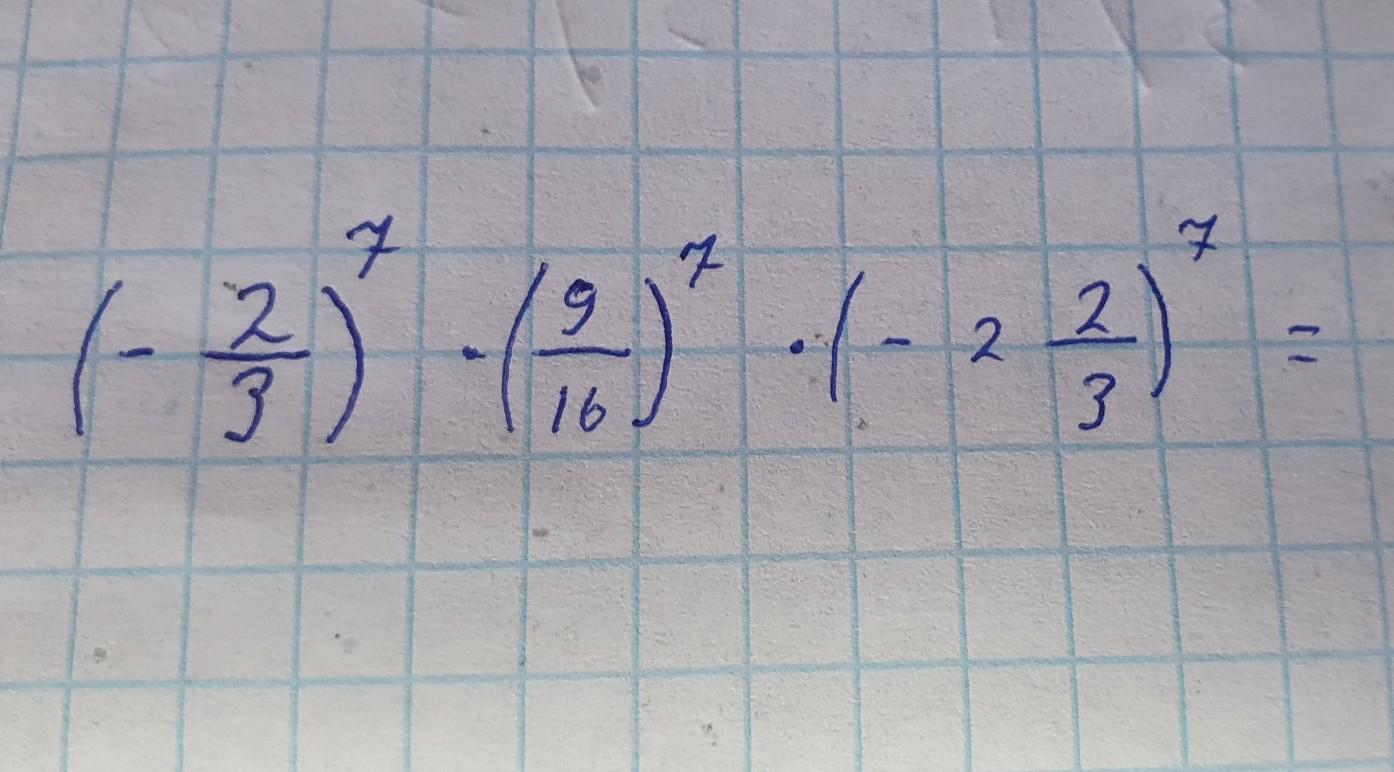 (- 2/3)^7 · (9/16)^7 · (- 2 2/3)^7 =